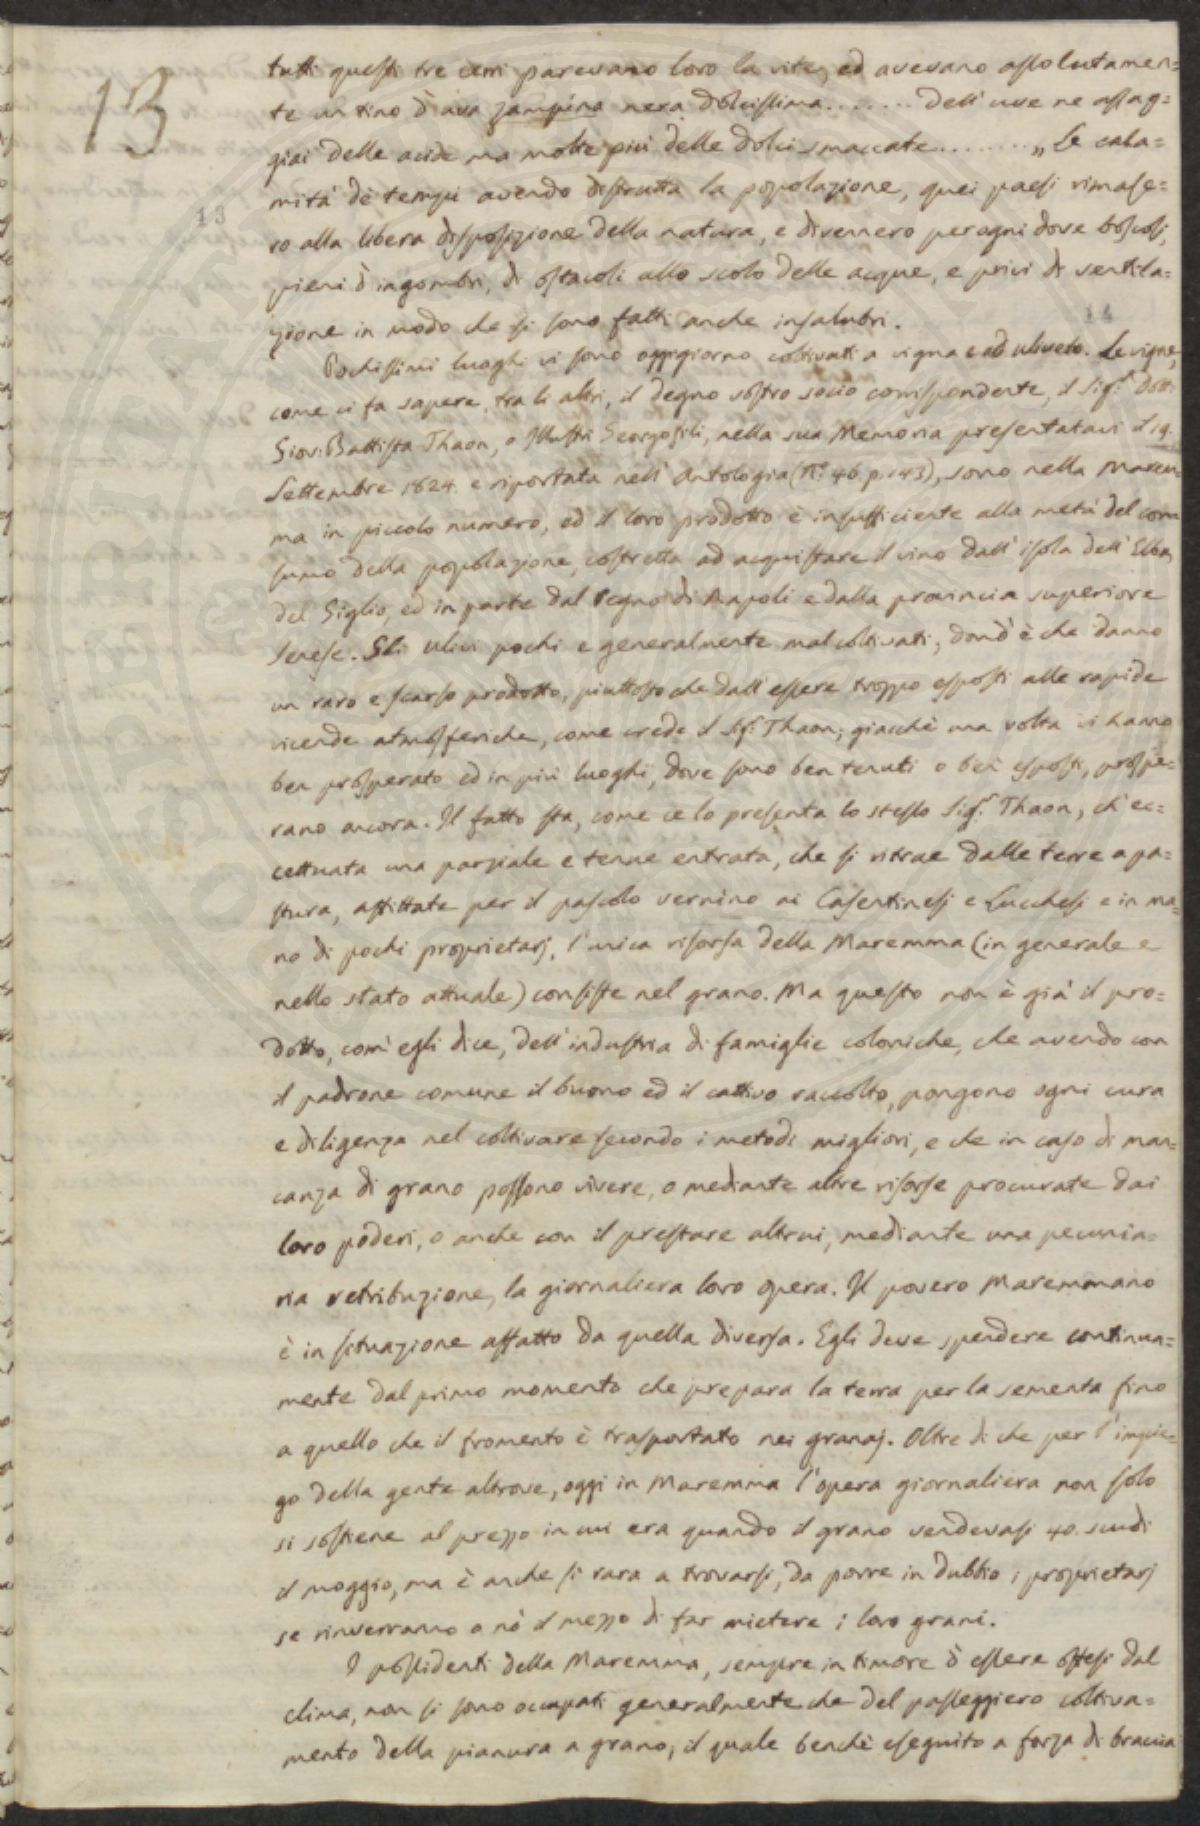 13
tutti questi tre cerri parevano loro la vite, ed avevano assolutamen=
te un tino d'uva zampina nera dolcissima........ dell'uve ne assag=
giai delle acide ma molte più delle dolci smaccate......... „ Le cala=
mità de' tempi avendo distrutta la popolazione, quei paesi rimase=
13
ro alla libera disposizione della natura, e divennero per ogni dove boscosi,
pieni d'ingombri, di ostacoli allo scolo delle acque, e privi di ventila=
zione in modo che si sono fatti anche insalubri.
14
Pochissimi luoghi vi sono oggigiorno coltivati a vigna e ad uliveto. Le vigne,
come ci fa sapere, tra li altri, il degno vostro socio corrispondente, il Sigr. Dott.
Giov: Battista Thaon, o Illustri Georgofili, nella sua Memoria presentatavi il 19.
Settembre 1824. e riportata nell'Antologia (N.º 46. p. 143), sono nella Marem
ma in piccolo numero, ed il loro prodotto è insufficiente alla metà del con
sumo della popolazione, costretta ad acquistare il vino dall'isola dell'Elba,
del Giglio, ed in parte dal Regno di Napoli e dalla provincia superiore
Senese. Gli ulivi pochi e generalmente mal coltivati, dond'è che danno
un raro e scarso prodotto, piuttosto che dall'essere troppo esposti alle rapide
vicende atmosferiche, come crede il Sigr. Thaon; giacchè una volta vi hanno
ben prosperato ed in più luoghi, dove sono ben tenuti o ben esposti, prospe=
rano ancora. Il fatto sta, come ce lo presenta lo stesso Sigr. Thaon, ch'ec=
cettuata una parziale e tenue entrata, che si ritrae dalle terre a pa=
stura, affittate per il pascolo vernino ai Casentinesi e Lucchesi e in ma=
no di pochi proprietarj, l'unica risorsa della Maremma (in generale e
nello stato attuale) consiste nel grano. Ma questo non è già il pro=
dotto, com'egli dice, dell'industria di famiglie coloniche, che avendo con
il padrone comune il buono ed il cattivo raccolto, pongono ogni cura
e diligenza nel coltivare secondo i metodi migliori, e che in caso di man=
canza di grano possono vivere, o mediante altre risorse procurate dai
loro poderi, o anche con il prestare altrui, mediante una pecunia=
ria retribuzione, la giornaliera loro opera. Il povero Maremmano
è in situazione affatto da quella diversa. Egli deve spendere continua=
mente dal primo momento che prepara la terra per la sementa fino
a quello che il fromento è trasportato nei granaj. Oltre di che per l'impie=
go della gente altrove, oggi in Maremma l'opera giornaliera non solo
si sostiene al prezzo in cui era quando il grano vendevasi 40. scudi
il moggio, ma è anche sì rara a trovarsi, da porre in dubbio i proprietarj
se rinverranno o nò il mezzo di far mietere i loro grani.
I possidenti della Maremma, sempre in timore d'essere offesi dal
clima, non si sono occupati generalmente che del passeggiero coltiva=
mento della pianura a grano, il quale benchè eseguito a forza di braccia